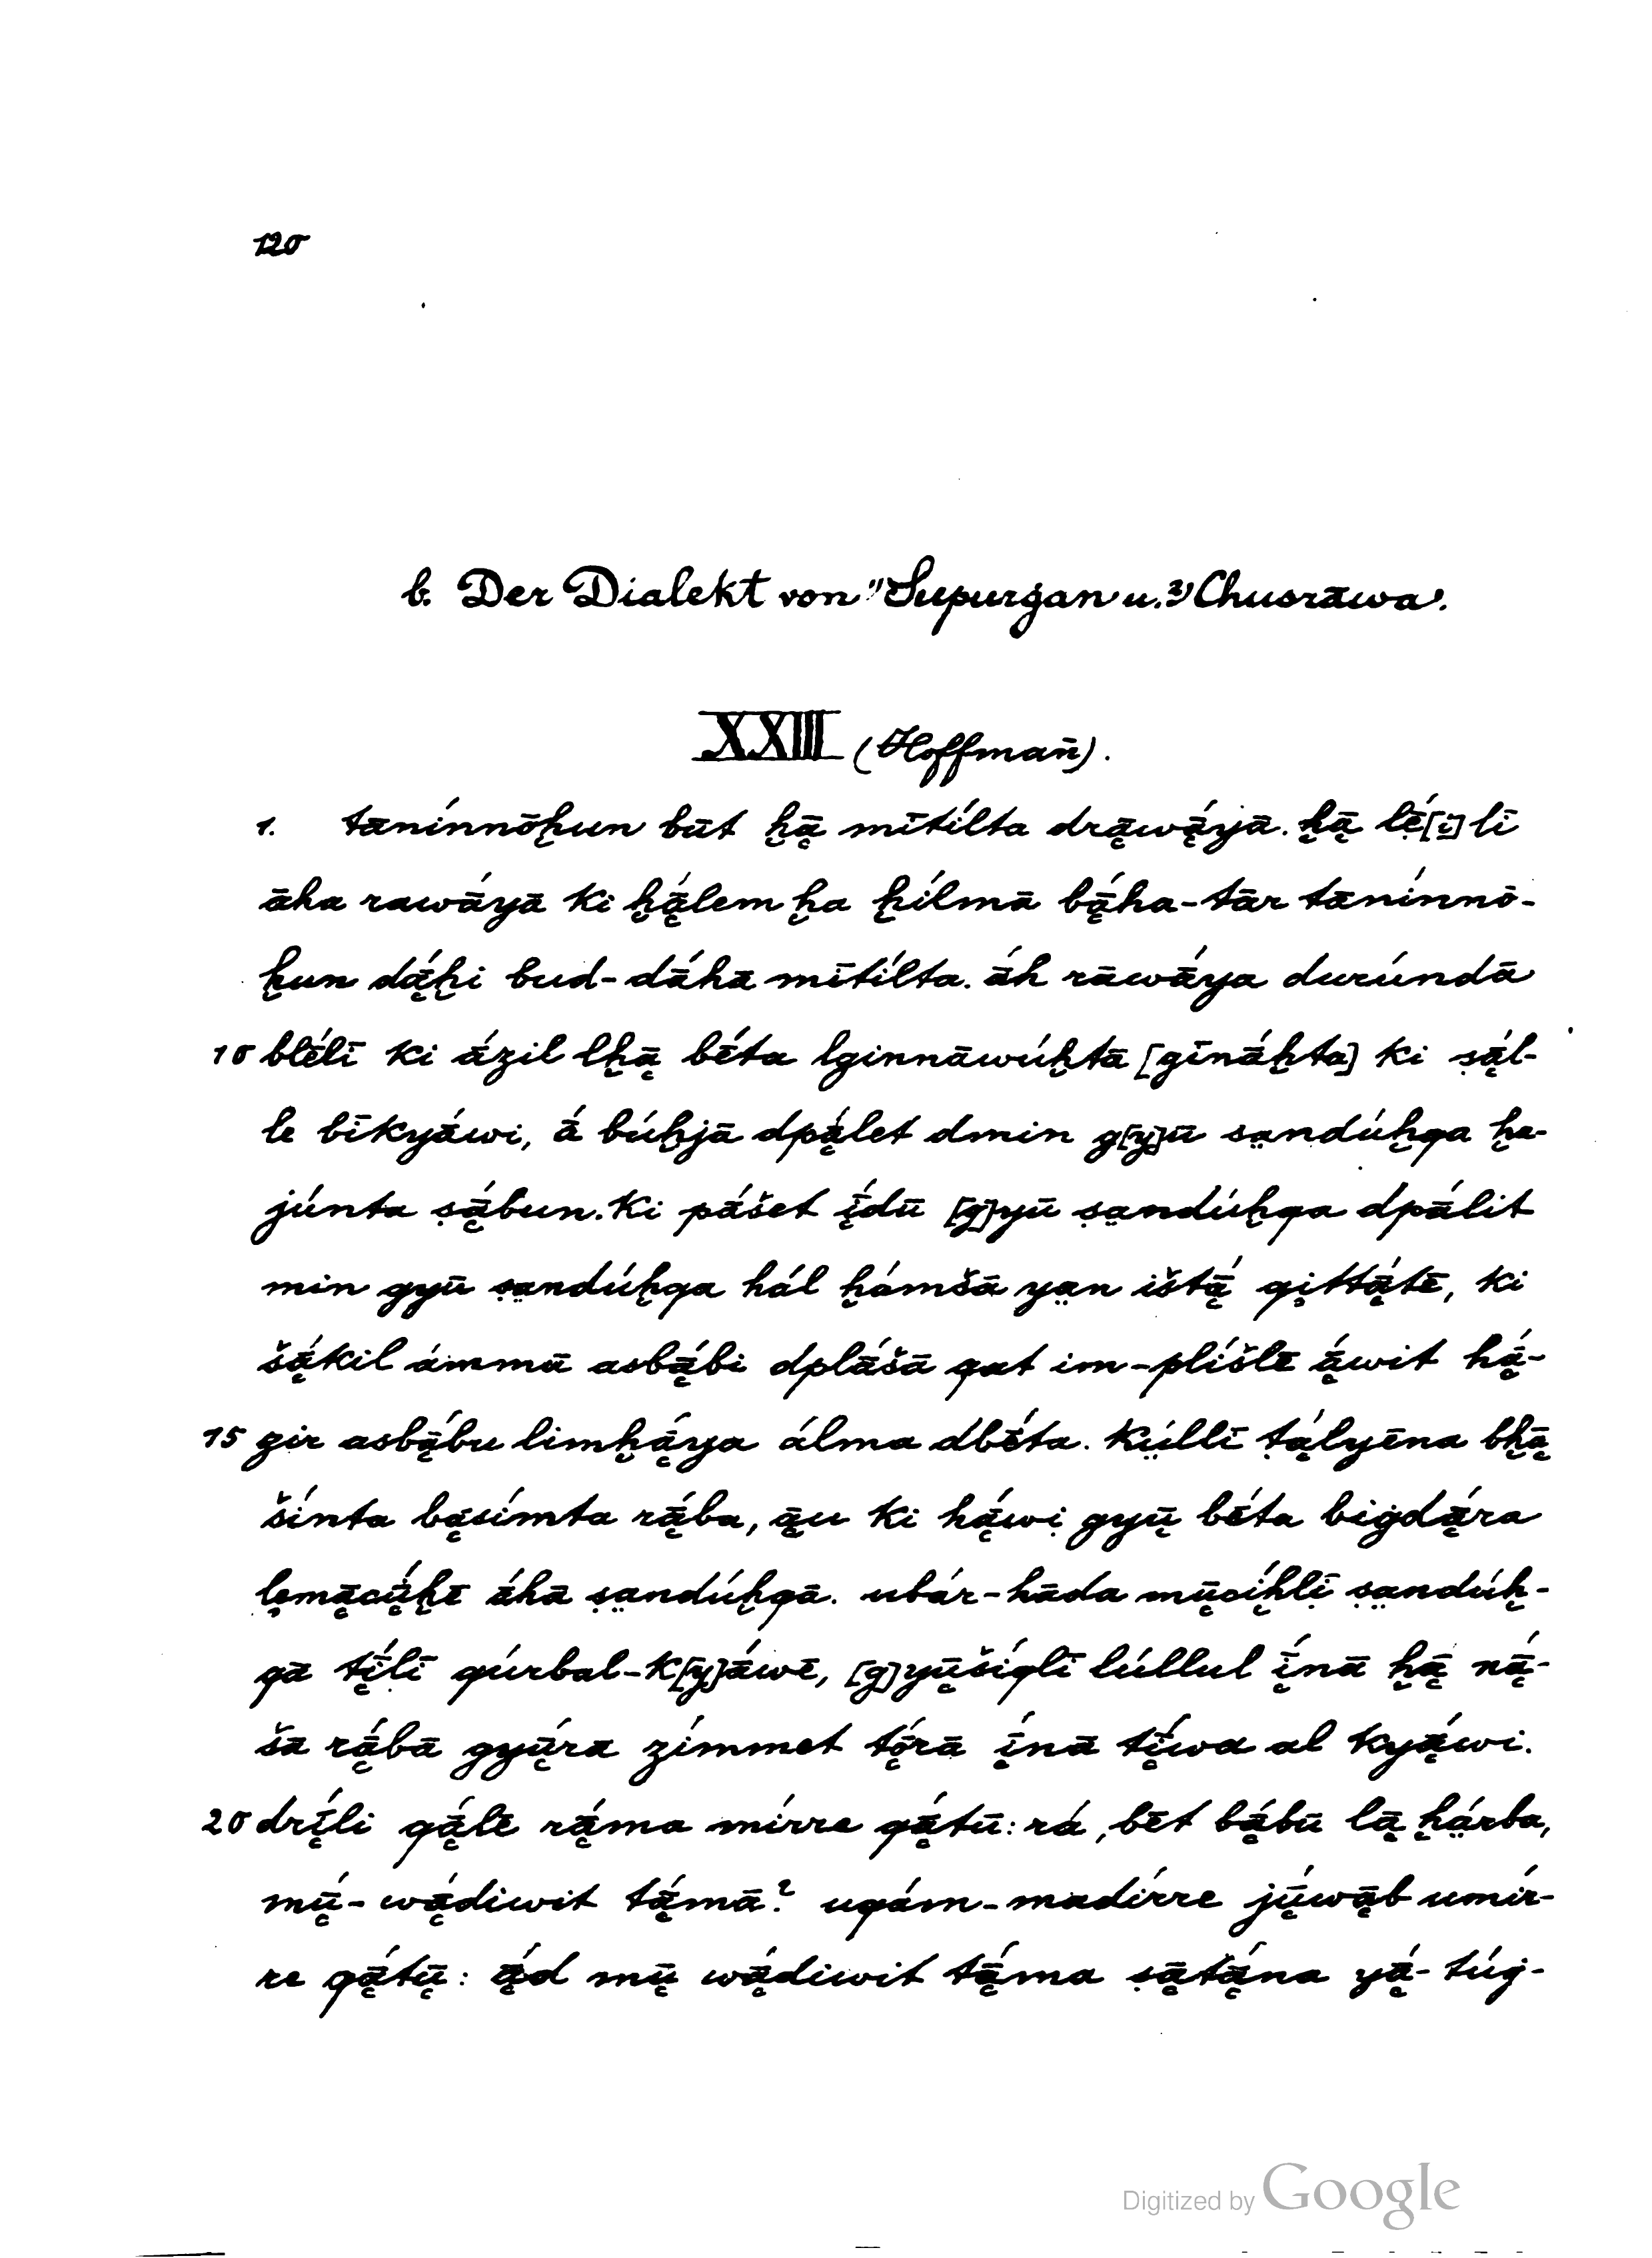 120
b. Der Dialekt von ¹⁾Supurġan u. ²⁾Chusrāwa.
XXIII (Hoffman̄).
1. tānínnōḫun būt ḫą̄ mītílta drą̄wą́̄yā. ḫą̄ lẹ̄́[i]lī
āha rawā́yā ki ḫą́̄lem ḫa ḫílmā bą́̄ha-tār tānínnō-
ḫun dą́̄ḫi bud-dā́hā mītílta. ā́h rāwā́ya durúndā
10 blḗlī ki ā́zil lḫą̄ bḗta lginnāwúḫtā [gīnā́ḫta] ki ṣą́̄l-
le bīkyā́wi, ā́ búḫjā dpą́̄let dmin g[y]ū sa̤ndúḫqa ḫa-
júnta ṣą́̄bun. ki pā́šet į̄́dū [g]yū ṣa̤ndúḫqa dpā́lit
min gyū ṣa̤ndúḫqa hál ḫámšā ya̤n ištą̄́ qịttą́̄tē, ki
šą́̄kil ámmā asbą́̄bi dplā́šā qat im-plíšlē ą́̄wit hą́̄-
15 zir asbą́̄bu limḫą́̄ya álma dbḗta. kṳ́llī ṭą́lyēna bḫą̄
šínta bąsímta rą́̄ba, ą̄u ki hą́̄wị gyų̄ bḗta biġdą́̄ra
lẹmą̄cų̄́ḫē ā́hā ṣa̤ndúḫqā. ubár-hāda mų̄cíḫlị̄ ṣa̤ndúḫ-
qā tį̄́lī qúrbal-k[y]ā́wē, [g]yų̄šíqlī lúllul į̄́nā ḫą̄ ną́̄-
šā rą́̄bā gyų̄́ra zímmet tǭ́rā į̄́nā tį̄́wa al kyą́̄wi.
20 drį̄́li qą́̄lē rą́̄ma mírre qą́̄tū: rá, bēt bą́̄bū lą̄ ḫá̤rba,
mų̄́-wą́̄diwit tą́̄mā? uqám-madírre jų̄́wą̄b umír-
re qą́̄tų̄: ą̄́d mų̄ wą́̄diwit tą́̄ma ṣą̄tą́̄na yą́̄-túġ-
Digitized by Google